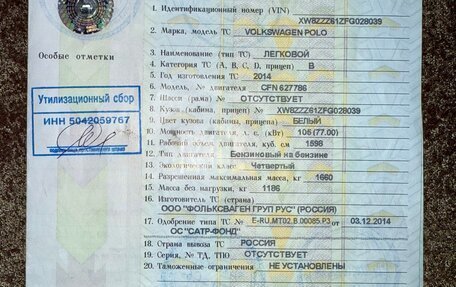 1. Идентификационный номер (VIN)
XW8ZZZ61ZFG028039
2. Марка, модель ТС VOLKSWAGEN POLO
Особые отметки
3. Наименование (тип ТС) ЛЕГКОВОЙ
4. Категория ТС (А, В, С, D, прицеп) В
5. Год изготовления ТС 2014
6. Модель, № двигателя CFN 627786
7. Шасси (рама) № ОТСУТСТВУЕТ
8. Кузов (кабина, прицеп) № XW8ZZZ61ZFG028039
9. Цвет кузова (кабины, прицепа) БЕЛЫЙ
10. Мощность двигателя, л. с. (кВт) 105 (77.00)
11. Рабочий объем двигателя, куб. см 1598
12. Тип двигателя Бензиновый на бензине
13. Экологический класс Четвертый
14. Разрешенная максимальная масса, кг 1660
15. Масса без нагрузки, кг 1186
16. Изготовитель ТС (страна)
ООО "ФОЛЬКСВАГЕН ГРУП РУС" (РОССИЯ)
17. Одобрение типа ТС № E-RU.MT02.B.00085.P3 от 03.12.2014
ОС "САТР-ФОНД"
18. Страна вывоза ТС РОССИЯ
19. Серия, № ТД, ТПО ОТСУТСТВУЕТ
20. Таможенные ограничения НЕ УСТАНОВЛЕНЫ
Утилизационный сбор
ИНН 5042059767